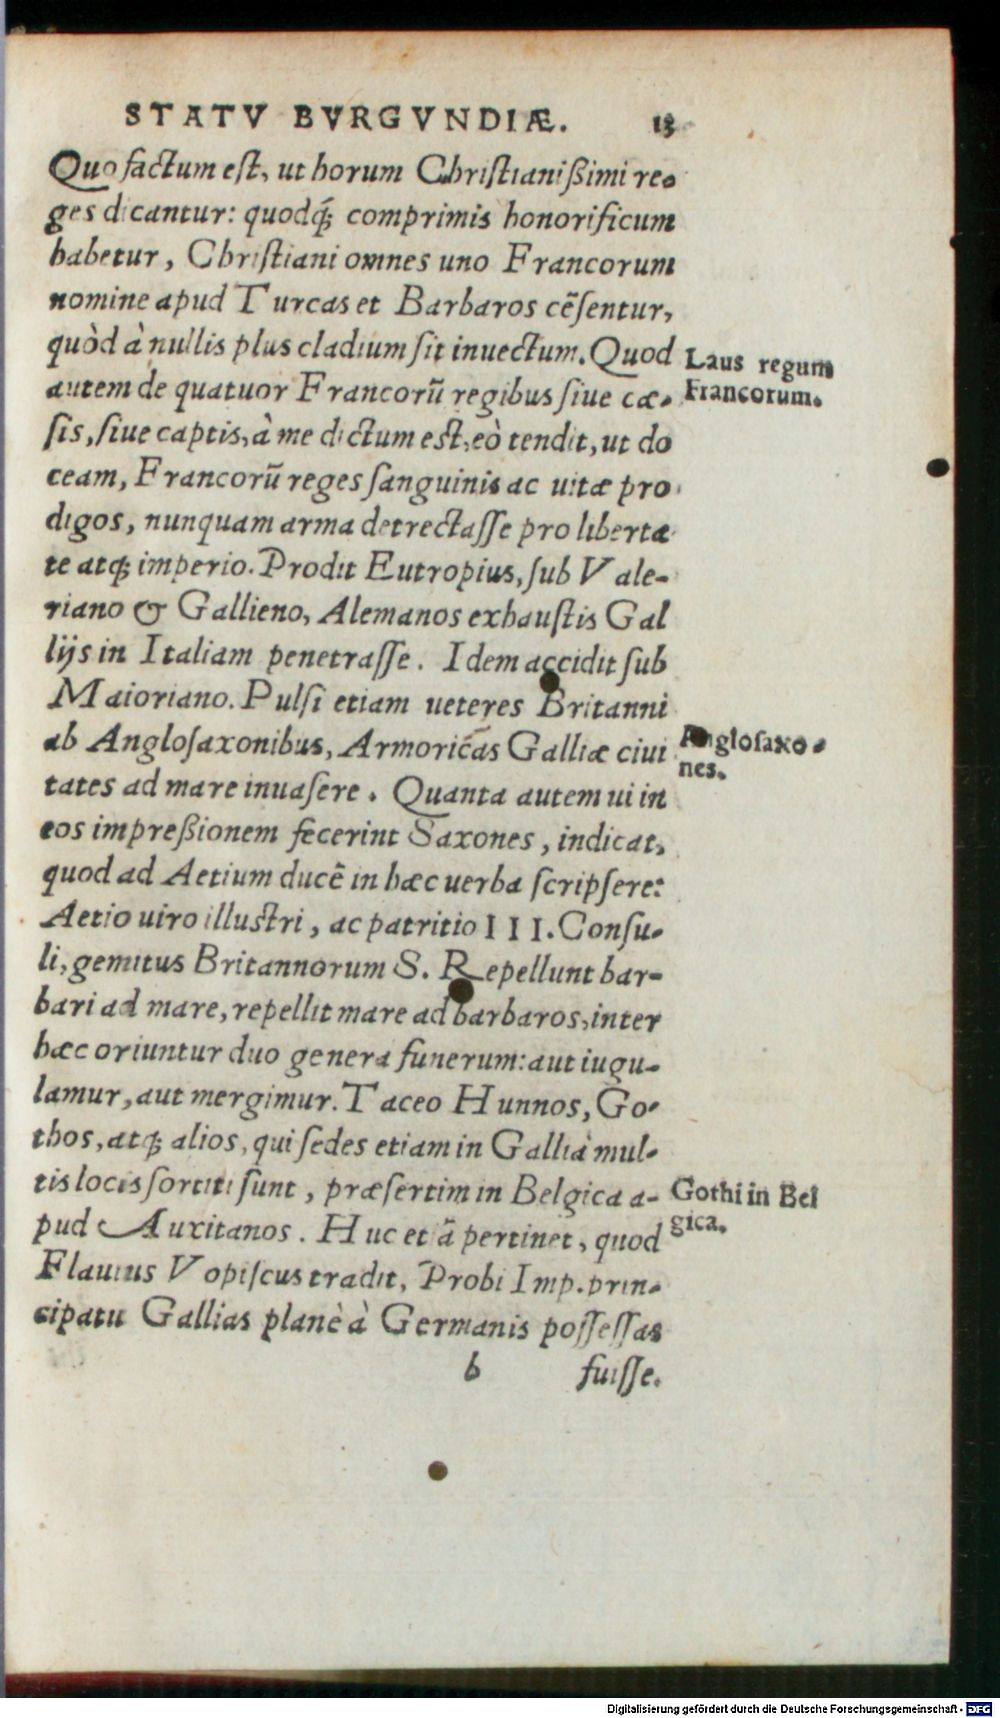 STATV BVRGVNDIÆ. 13
Quo factum eſt, ut horum Chriſtianißimi re-
ges dicantur: quodq́; comprimis honorificum
habetur, Chriſtiani omnes uno Francorum
nomine apud Turcas et Barbaros cẽſentur,
quòd à nullis plus cladium ſit inuectum. Quod
Laus regum
autem de quatuor Francorũ regibus ſiue cæ-
Francorum.
ſis, ſiue captis, à me dictum eſt, eò tendit, ut do
ceam, Francorũ reges ſanguinis ac uitæ pro
digos, nunquam arma detrectaſſe pro liberta
te atq; imperio. Prodit Eutropius, ſub Vale-
riano & Gallieno, Alemanos exhauſtis Gal
lijs in Italiam penetraſſe. Idem accidit ſub
Maioriano. Pulſi etiam ueteres Britanni
ab Angloſaxonibus, Armoricãs Galliæ ciui
Angloſaxo-
nes.
tates ad mare inuaſere. Quanta autem ui in
eos impreßionem fecerint Saxones, indicat,
quod ad Aetium ducẽ in hæc uerba ſcripſere:
Aetio uiro illuſtri, ac patritio III. Conſu-
li, gemitus Britannorum S. Repellunt bar-
bari ad mare, repellit mare ad barbaros, inter
hæc oriuntur duo genera funerum: aut iugu-
lamur, aut mergimur. Taceo Hunnos, Go-
thos, atq; alios, qui ſedes etiam in Gallia mul-
tis locis ſortiti ſunt, præſertim in Belgica a-
Gothi in Bel
gica.
pud Auxitanos. Huc et ã pertinet, quod
Flauius Vopiſcus tradit, Probi Imp. prin-
cipatu Gallias planè à Germanis poſſeſſas
b fuiſſe.
Digitalisierung gefördert durch die Deutsche Forschungsgemeinschaft - DFG